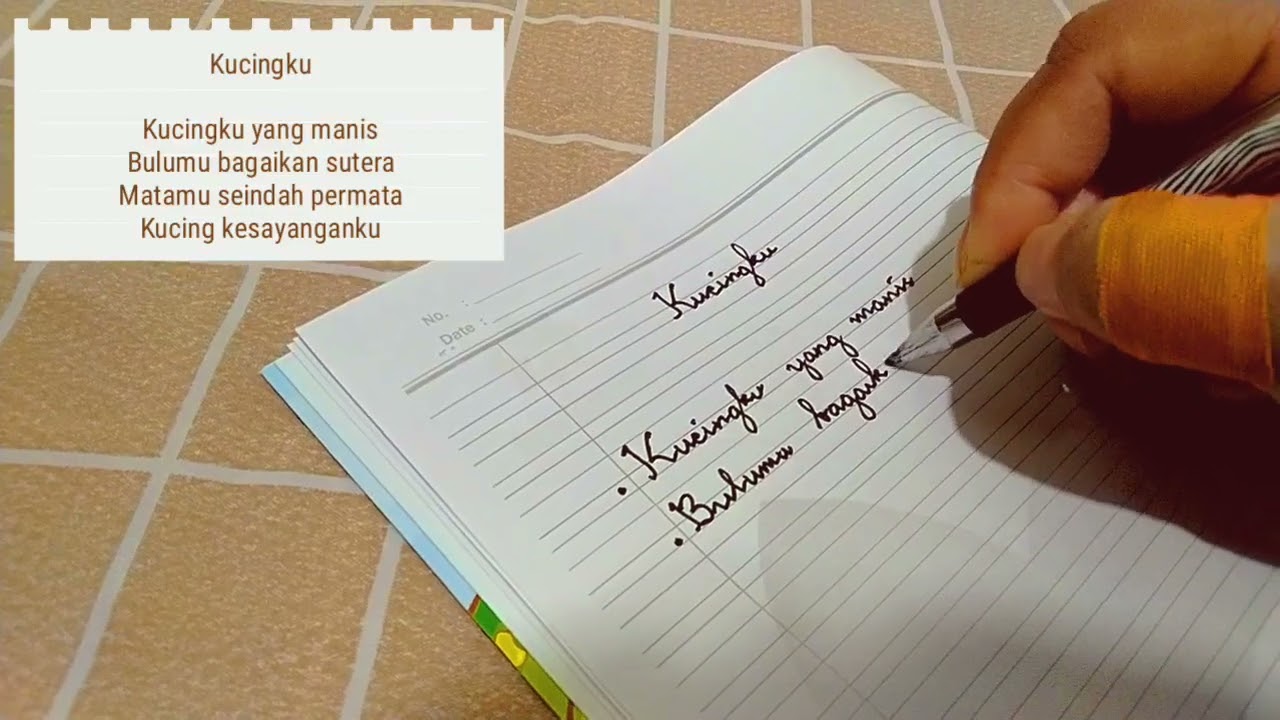 Kucingku
Kucingku yang manis
Bulumu bagaikan sutera
Matamu seindah permata
Kucing kesayanganku
No. :
Date :
Kucingku
. Kucingku yang manis
. Bulumu bagaik